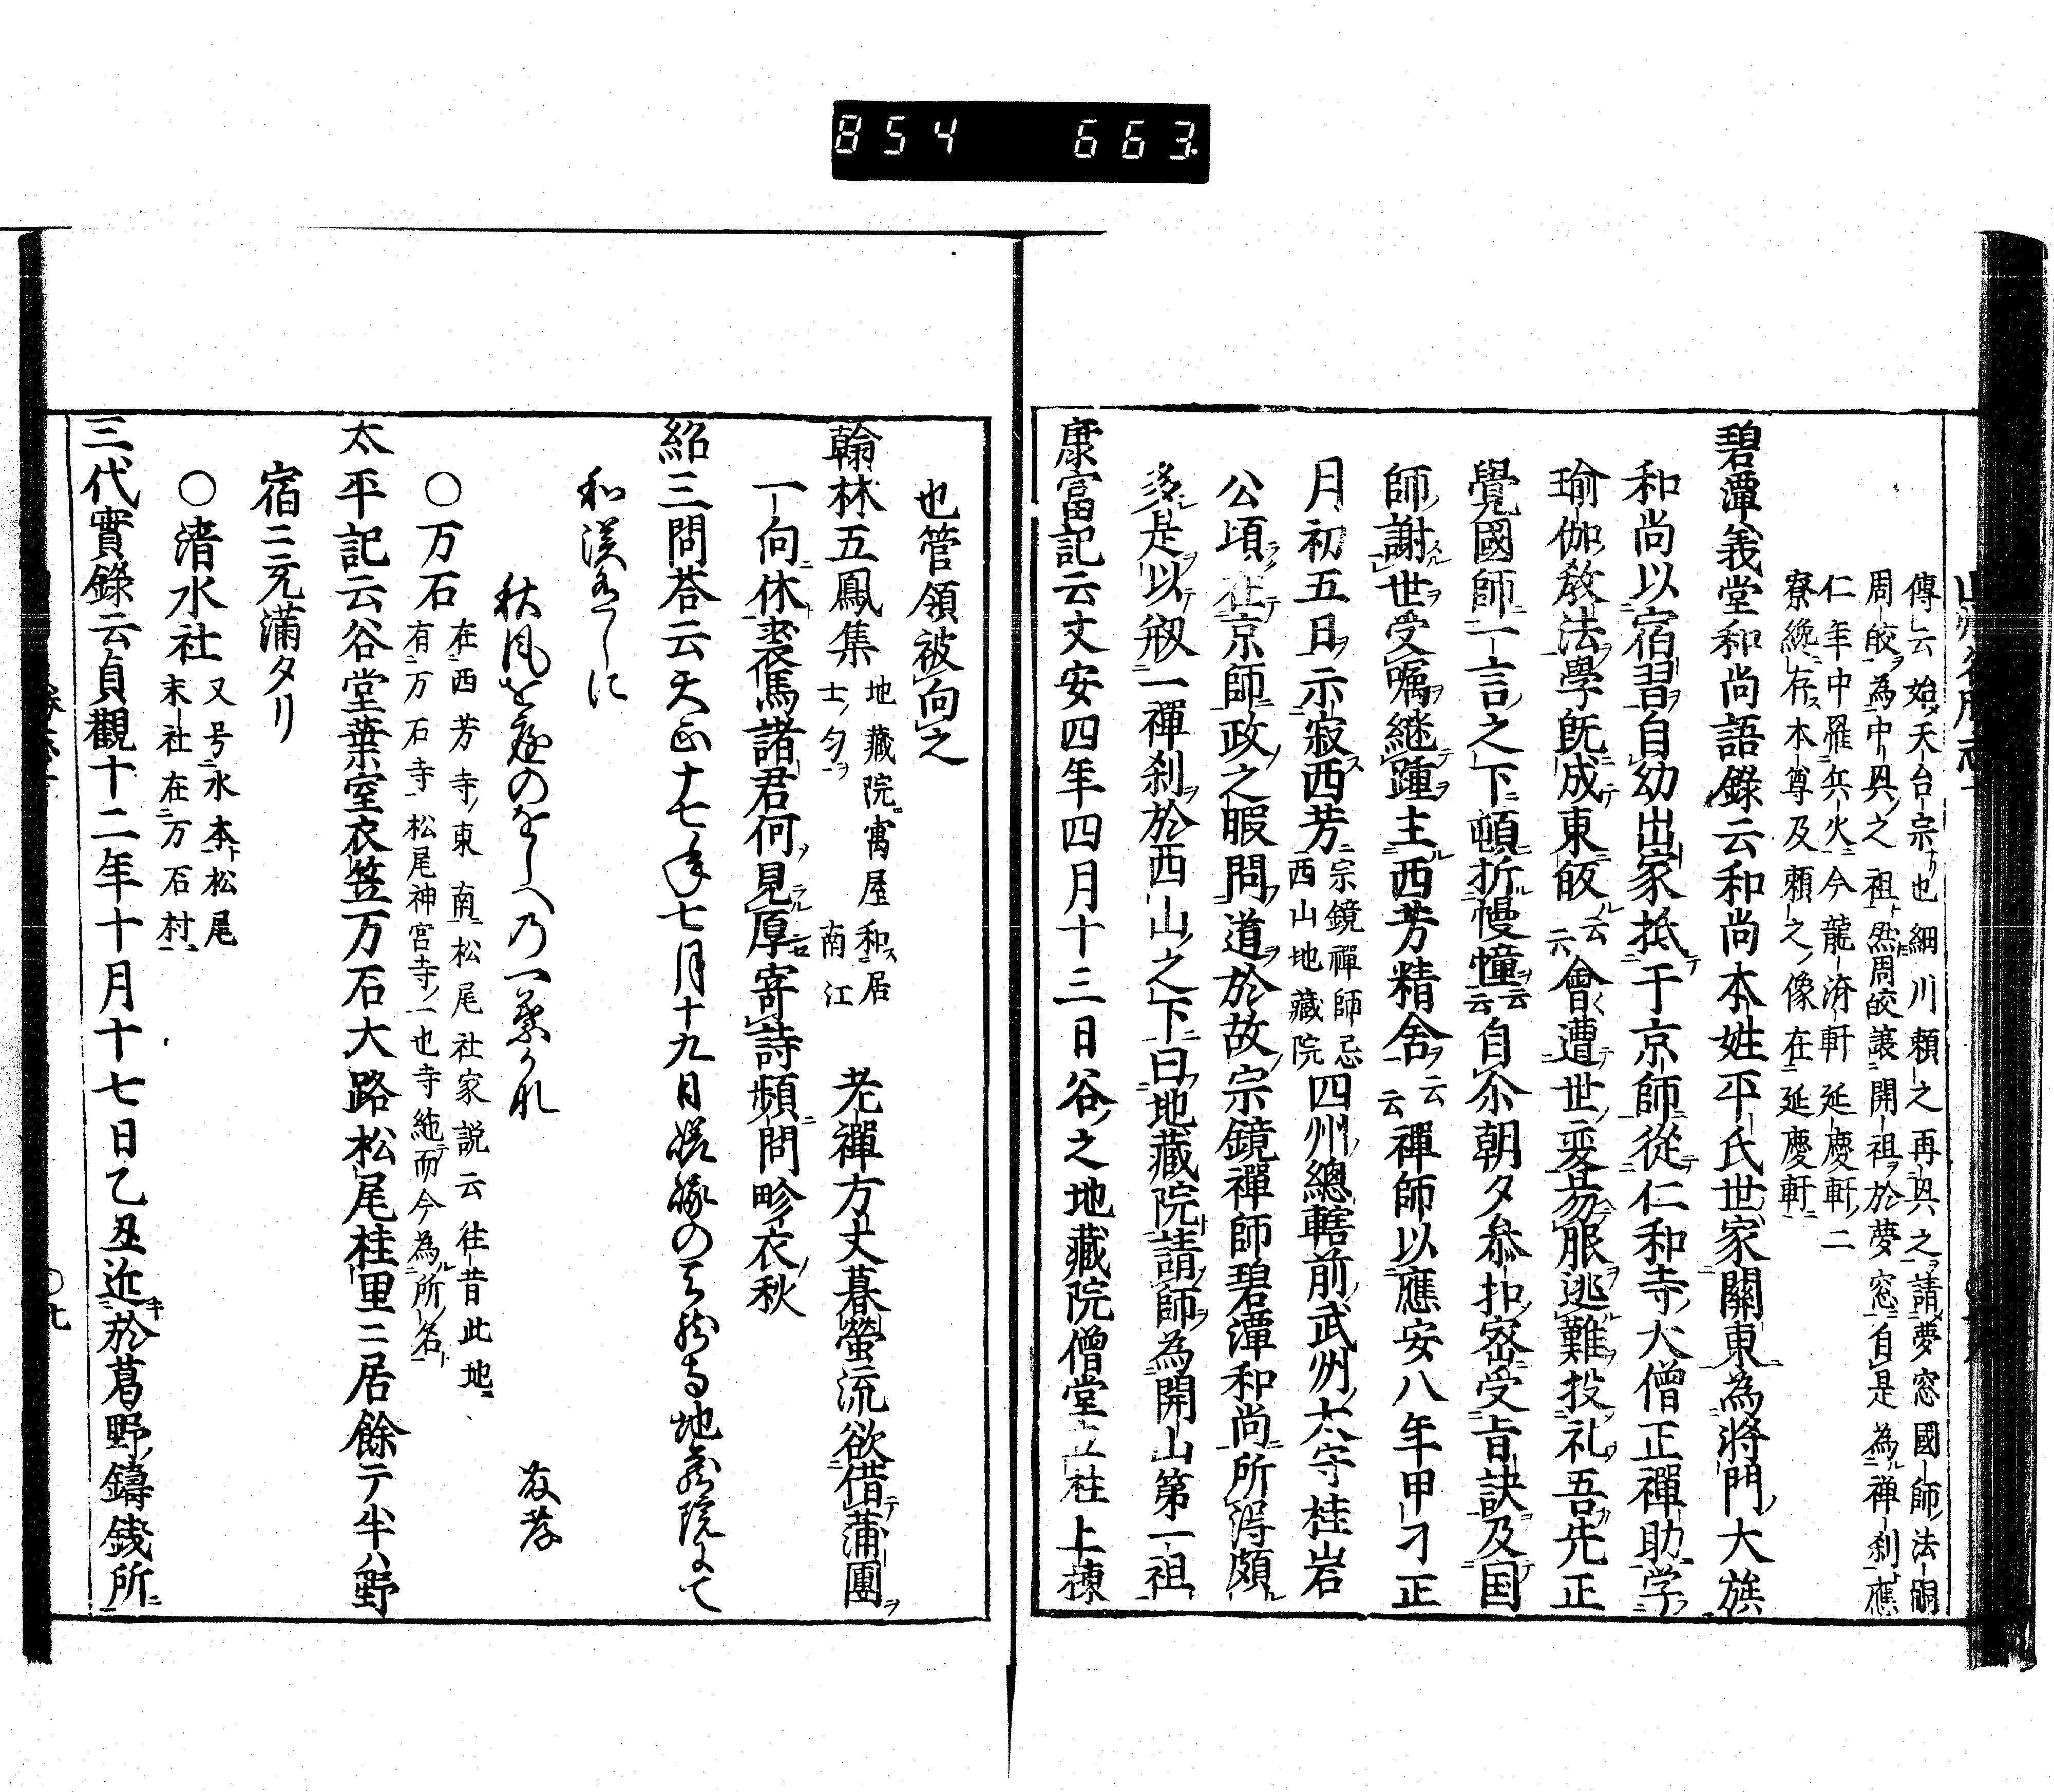 854 663
傳云始天台宗也細川頼之再興之請夢窓國師法嗣
周皎為中興之祖然周皎譲開祖於夢窓自是為禅刹應
仁年中罹兵火今龍済軒延慶軒二
寮纔存本尊及頼之像在延慶軒
碧潭義堂和尚語錄云和尚本姓平氏世家關東為將門大族
和尚以宿習自幼出家抵于京師從仁和寺大僧正禪助学
瑜伽教法學既成東皈云云會遭世変易服逃難投礼吾先正
覺國師一言之下頓折慢幢云云自尒朝夕叅扣密受旨訣及国
師謝世受嘱継踵主西芳精舍云云禪師以應安八年甲刁正
月初五日示寂西芳宗鏡禪師忌西山地藏院四州總轄前武州太守桂岩
公頃在京師政之暇問道於故宗鏡禪師碧潭和尚所淂頗
多是以剏一禪刹於西山之下曰地藏院請師為開山第一祖
康富記云文安四年四月十三日谷之地藏院僧堂立柱上棟
也管領被向之
翰林五鳳集地藏院寓屋和居士匀南江 老禪方丈暮螢流欲借蒲團
一向休裘馬諸君何見厚寄詩頻問畛衣秋
紹三問荅云天正十七年七月十九日嵯峨の天龍寺地藏院にて
和漢有しに
秋風を庭のをしへの一葉かれ
玄孝
○万石在西芳寺東南松尾社家説云往昔此地有万石寺松尾神宮寺一也寺絁而今為所名
太平記云谷堂葉室衣笠万石大路松尾桂里ニ居餘テ半ハ野
宿ニ充滿タリ
○渚水社又号水本松尾末社在万石村
三代實錄云貞觀十二年十月十七日乙丑近於葛野鑄銭所